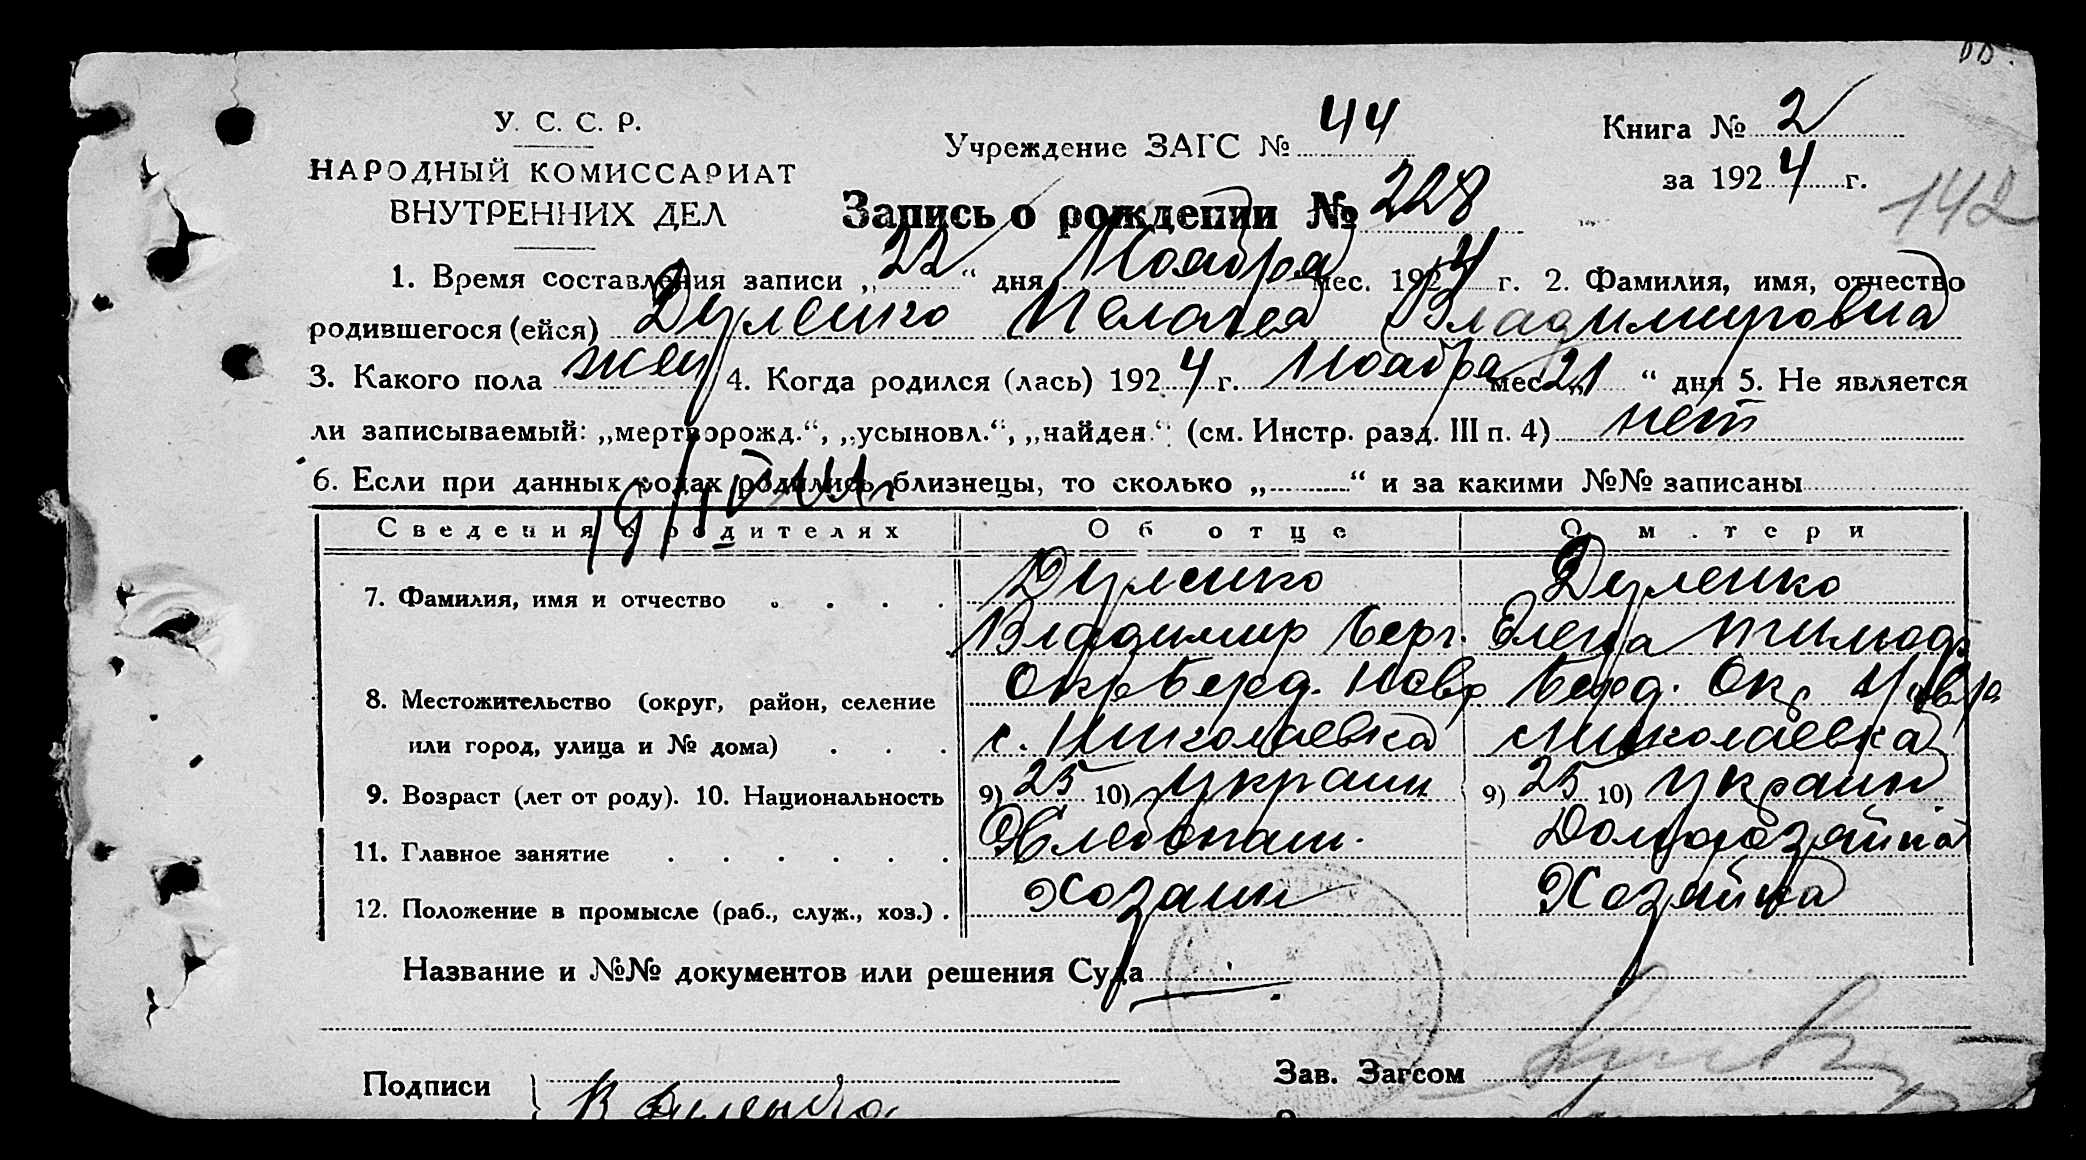 У. С. С. Р.
НАРОДНЫЙ КОМИССАРИАТ
ВНУТРЕННИХ ДЕЛ
Учреждение ЗАГС № 44
Книга № 2
за 1924 г.
142
Запись о рождении № 228
1. Время составления записи „22“ дня Ноября мес. 1924 г. 2. Фамилия, имя, отчество
родившегося (ейся) Дуленко Пелагея Владимировна
3. Какого пола жен 4. Когда родился (лась) 1924 г. Ноября мес. „21“ дня 5. Не является
ли записываемый: „мертворожд.“, „усыновл.“, „найден.“ (см. Инстр. разд. III п. 4) нет
6. Если при данных родах родились близнецы, то сколько „ “ и за какими №№ записаны
Сведения о родителях Об отце О матери
7. Фамилия, имя и отчество Дуленко Дуленко
Владимир Елена
8. Местожительство (округ, район, селение Окр Берд. Берд. Окр
или город, улица и № дома) с. Николаевка Николаевка
9. Возраст (лет от роду). 10. Национальность 9) 25 10) Украин 9) 25 10) Украин.
11. Главное занятие Хлебопаш. Домохозяйка
12. Положение в промысле (раб., служ., хоз.) Хозяин Хозяйка
Название и №№ документов или решения Суда
Подписи
Зав. Загсом